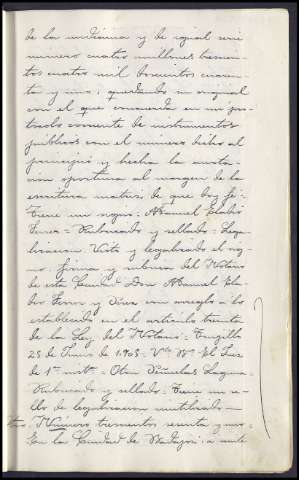 de la undécima y de igual serie
numero cuatro millones trescien-
tos cuatro mil trescientos cuaren-
ta y uno; quedando su original
con el que concuerda en mi pro-
tocolo corriente de instrumentos
publicos con el numero dicho al
principio y hecha la anota-
cion oportuna al margen de la
escritura matriz de que doy fé.
Tiene un signo. Manuel Eladio
Ferrer = Rubricado y sellado = Lega-
lizacion. Visto y legalizado el sig-
no, firma y rubrica del Notario
de esta Ciudad Don Manuel Ela-
dio Ferrer y con arreglo a lo
establecido en el articulo treinta
de la Ley del Notario = Trujillo
25 de Junio de 1905 = Vº Bº El Juez
de 1ª instª =
Rubricado y sellado. Tiene un se-
llo de legalizacion inutilizado =
Otra. Número trescientos sesenta y uno.
En la Ciudad de Badajoz: a vein-